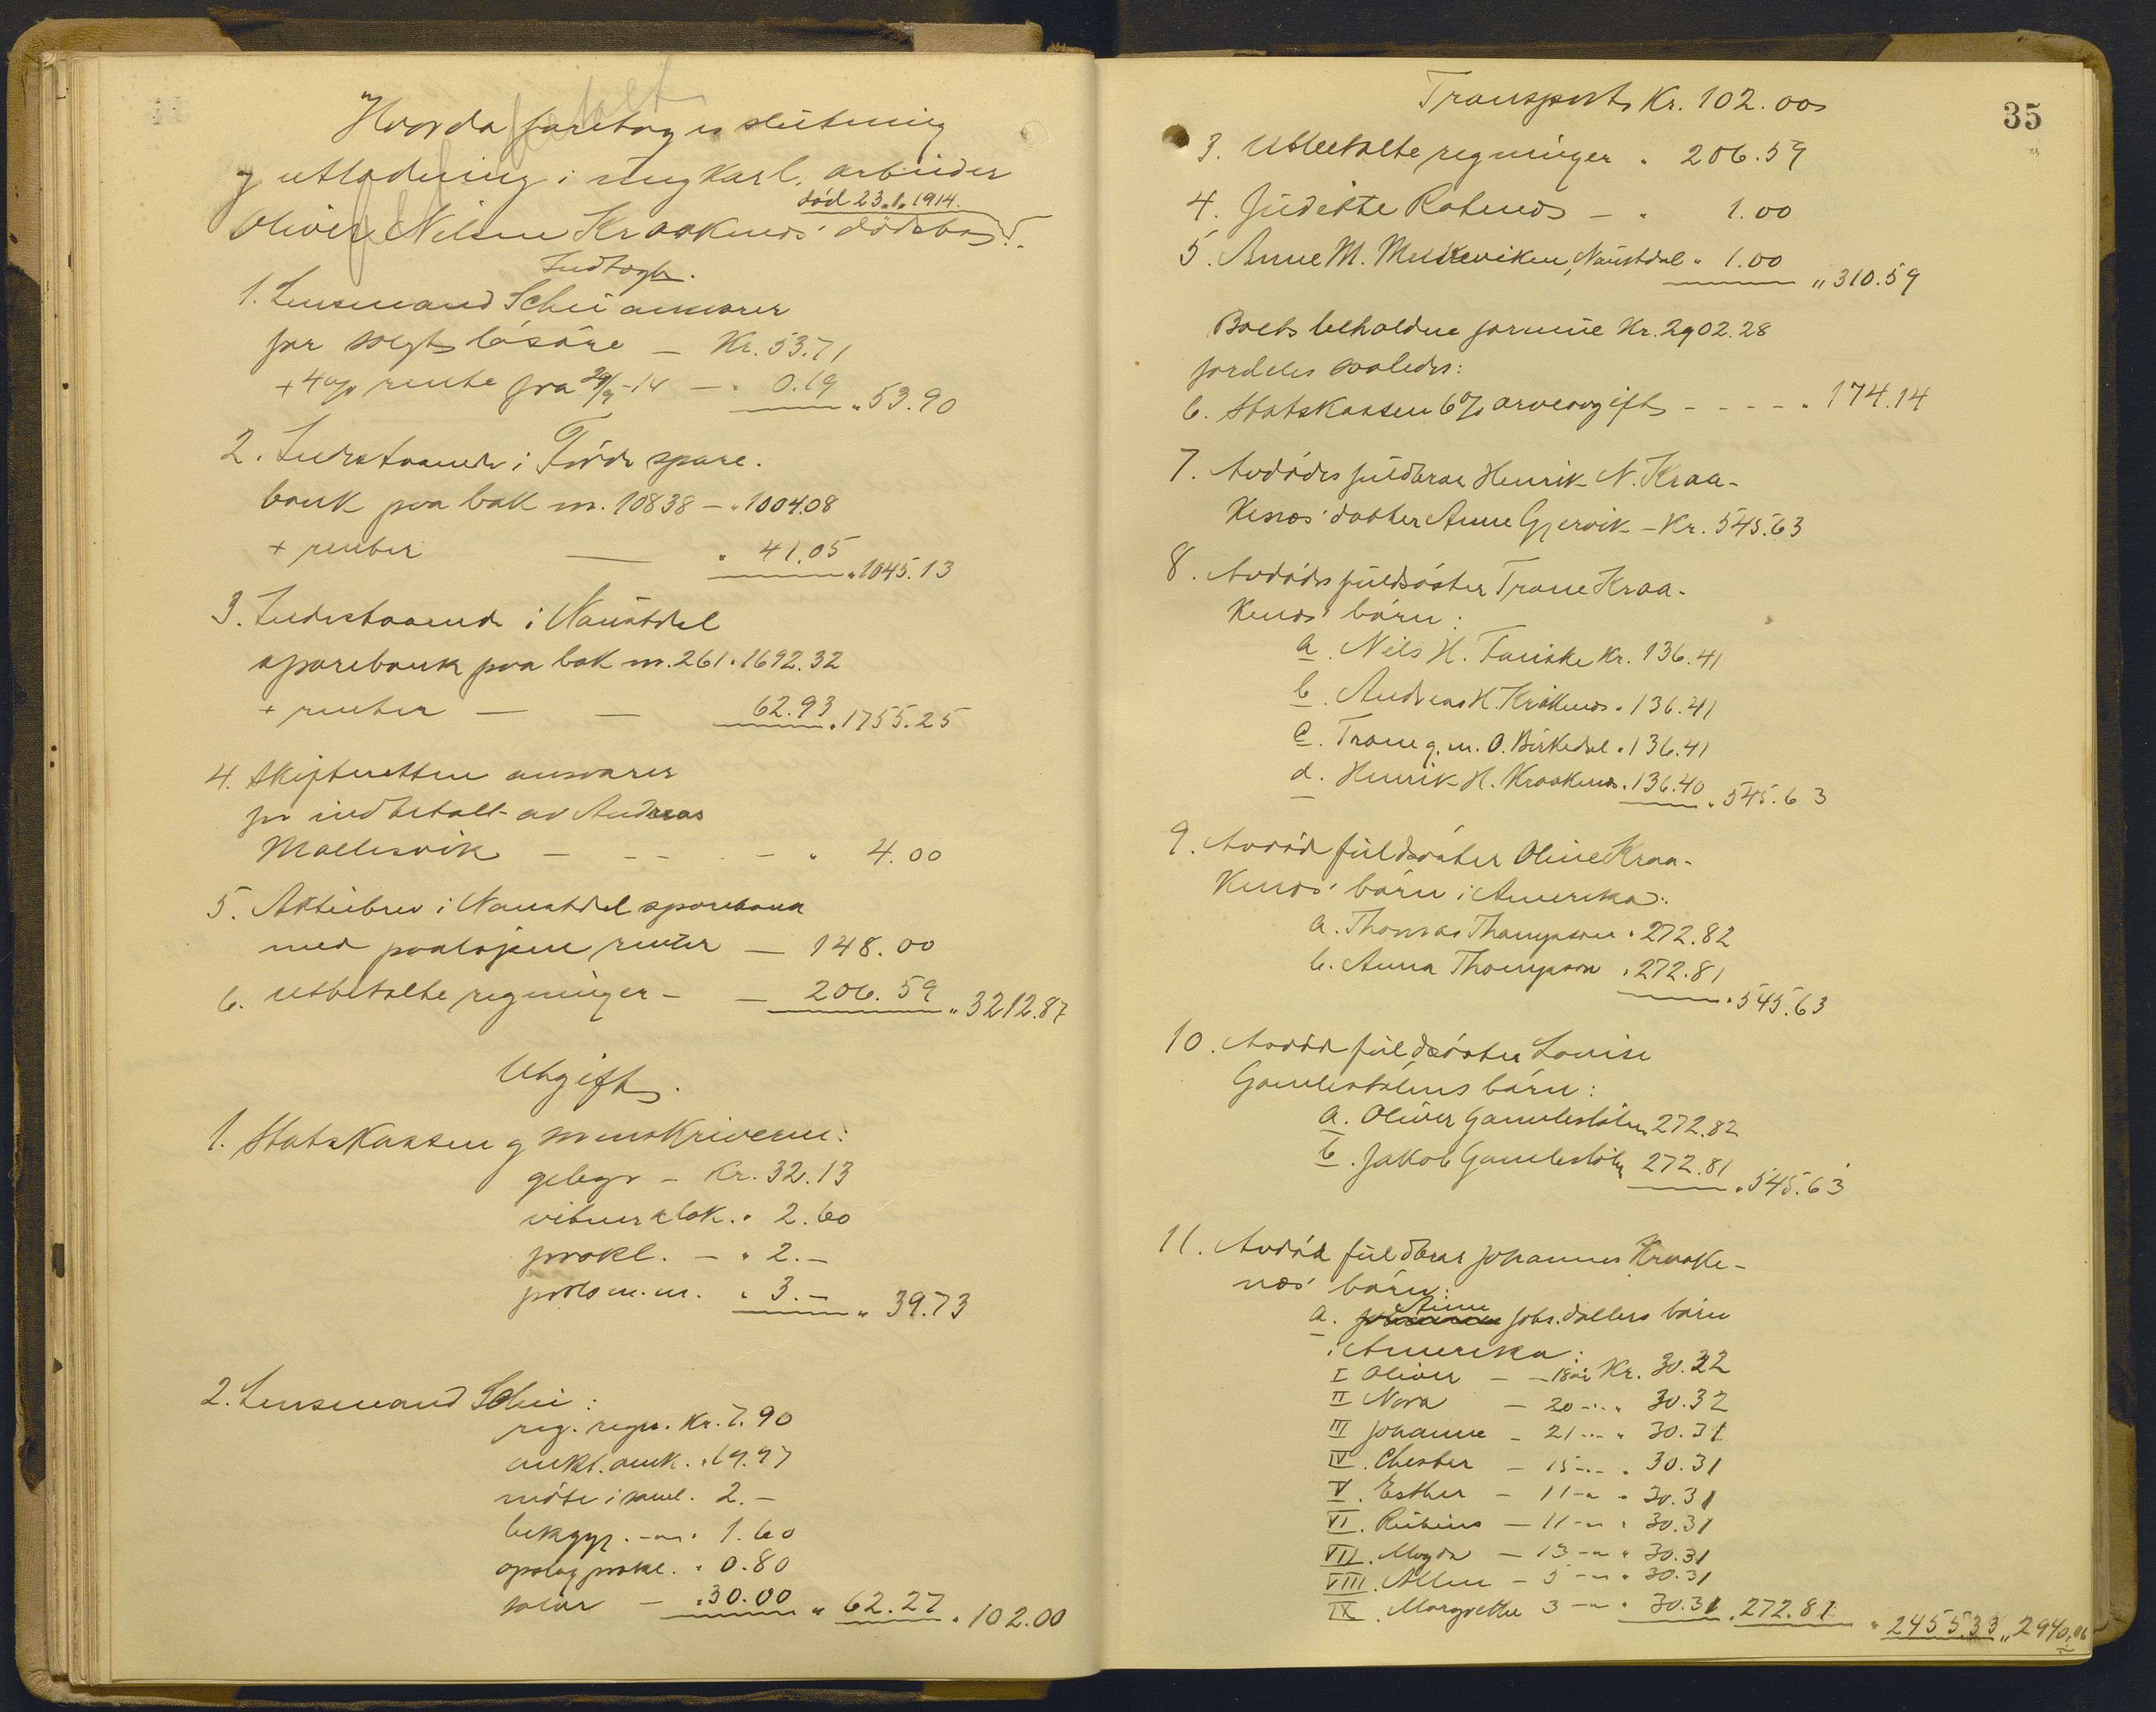 Hvorda foretoges slutning
og utlodning i ungkarl, arbeider
død 23.1.1914.
Oliver Nilsen Kraakenes' dødsbo.
Indtægt.
1. Lensmand Schei ansvarer
for solgt løsøre — Kr. 53.71
+ 4% rente fra 29/9-14 — " 0.19 " 53.90
2. Indestaaende i Førde spare-
bank paa bok nr. 10838 — " 1004.08
+ renter — " 41.05 " 1045.13
3. Indestaaende i Naustdal
sparebank paa bok nr. 261 " 1692.32
+ renter — — 62.93 " 1755.25
4. Skifteretten ansvarer
for indbetalt av Andreas
Mallesvik — — — " 4.00
5. Aktiebrev i Naustdal sparebank
med paaløpne renter — 148.00
6. Utbetalte regninger — — 206.59 " 3212.87
Utgift.
1. Statskassen og sorenskriveren:
gebyr — Kr. 32.13
vitner & lok. " 2.60
prokl. — " 2.—
porto m.m. " 3.— " 39.73
2. Lensmand Schei:
reg. regn. Kr. 7.90
aukt. omk. " 19.97
møte i saml. 2.—
bekgj. —"— " 1.60
opslag prokl. " 0.80
salær — " 30.00 " 62.27 " 102.00
35
Transport Kr. 102.00
3. Utbetalte regninger " 206.59
4. Judithe Ratenes — " 1.00
5. Anne M. Naustdal " 1.00 " 310.59
Boets beholdne formue Kr. 2902.28
fordeles saaledes:
6. Statskassen 6% arveavgift - - - - - " 174.14
7. Avdødes fuldbror Henrik N. Kraa-
kenes' datter Anne Gjervik — Kr. 545.63
8. Avdødes fuldsøster Trane Kraa-
kenes' børn:
a. Nils H. Fauske Kr. 136.41
b. Andreas H. Kråkenes " 136.41
c. Trane g. m. O. Birkedal " 136.41
d. Henrik H. Kraakenes " 136.40 " 545.63
9. Avdød fuldsøster Oline Kraa-
kenes' børn i Amerika:
a. Thomas Thompson " 272.82
b. Anna Thompson " 272.81 " 545.63
10. Avdød fuldsøster Lovise
Gamlestølens børn:
a. Oliver Gamlestølen 272.82
b. Jakob Gamlestølen 272.81 " 545.63
11. Avdød fuldbror Johannes Kraake-
nes' børn:
a. Anne Johs.datters børn
i Amerika:
I Oliver — — 18 år Kr. 30.32
II Nora — 20 —"— " 30.32
III Johanne — 21 —"— " 30.31
IV. Chester — 15 —"— " 30.31
V. Esther — 11 —"— " 30.31
VI. Rubins — 11 —"— " 30.31
VII. Magda — 13 —"— " 30.31
VIII. Allen — 5 —"— " 30.31
IX. Margrethe 3 —"— " 30.31 " 272.81 " 2455.33 " 2940.06